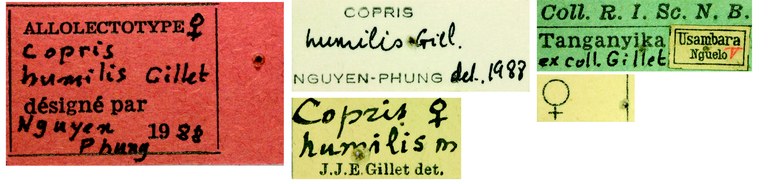 ALLOLECTOTYPE ♀
Copris
humilis Gillet
désigné par
Nguyen 1988
Phung
COPRIS
humilis Gill.
NGUYEN-PHUNG det. 1988
Copris ♀
humilis m
J.J.E. Gillet det.
Coll. R. I. Sc. N. B.
Tanganyika
ex coll. Gillet
Usambara
Nguelo V
♀